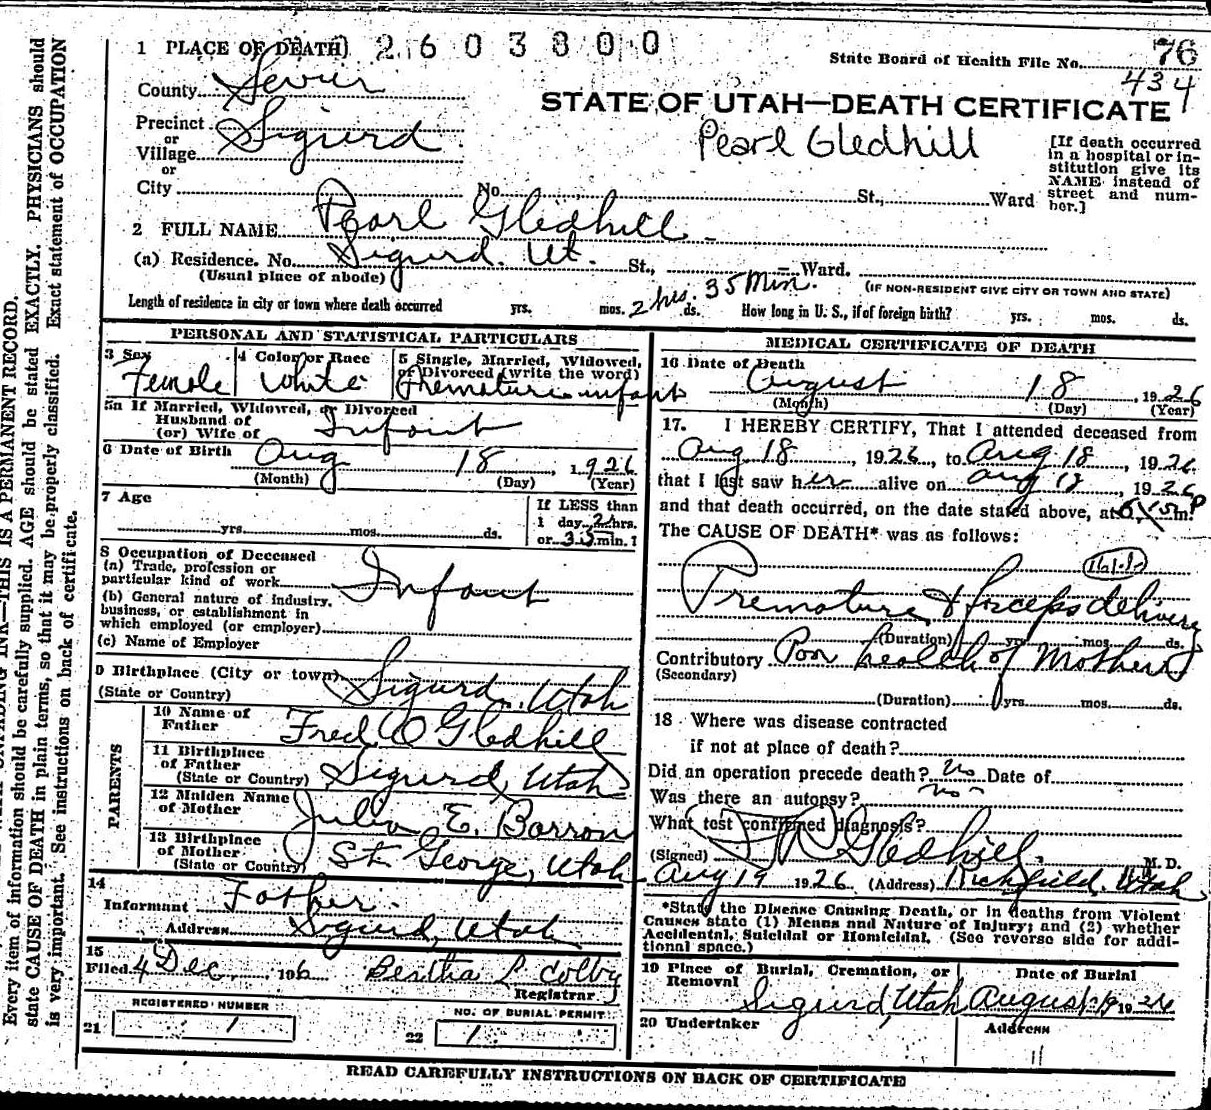 1 PLACE OF DEATH 2603800
State Board of Health File No. 76
434
County Sevier
STATE OF UTAH—DEATH CERTIFICATE
Precinct
or
Village Sigurd
or
Pearl Gledhill
[If death occurred in a hospital or institution give its NAME instead of street and number.]
City No. St., Ward
2 FULL NAME Pearl Gledhill
(a) Residence. No. Sigurd. Ut. St., Ward.
(Usual place of abode)
(IF NON-RESIDENT GIVE CITY OR TOWN AND STATE)
Length of residence in city or town where death occurred yrs. mos. 2 hrs. 35 Min. ds. How long in U. S., if of foreign birth? yrs. mos. ds.
PERSONAL AND STATISTICAL PARTICULARS
3 Sex Female
4 Color or Race White
5 Single, Married, Widowed, or Divorced (write the word) Premature infant
5a If Married, Widowed, or Divorced
Husband of
(or) Wife of Infant
6 Date of Birth Aug 18, 1926
(Month) (Day) (Year)
7 Age
yrs. mos. ds.
If LESS than
1 day 2 hrs.
or 35 min. ?
8 Occupation of Deceased
(a) Trade, profession or
particular kind of work Infant
(b) General nature of industry,
business, or establishment in
which employed (or employer)
(c) Name of Employer
9 Birthplace (City or town) Sigurd, Utah
(State or Country)
PARENTS
10 Name of
Father Fred O Gledhill
11 Birthplace
of Father
(State or Country) Sigurd, Utah
12 Maiden Name
of Mother Julia E. Barron
13 Birthplace
of Mother
(State or Country) St. George, Utah
14
Informant Father.
Address Sigurd, Utah
15
Filed 4 Dec, 1926 Bertha L Colby
Registrar
REGISTERED NUMBER
21 1
NO. OF BURIAL PERMIT
22 1
MEDICAL CERTIFICATE OF DEATH
16 Date of Death
August 18, 1926
(Month) (Day) (Year)
17. I HEREBY CERTIFY, That I attended deceased from
Aug 18, 1926, to Aug 18, 1926
that I last saw her alive on Aug 18, 1926
and that death occurred, on the date stated above, at m. P
The CAUSE OF DEATH* was as follows:
Premature & forceps delivery
(Duration) yrs. mos. ds.
Contributory Poor health of Mother
(Secondary)
(Duration) yrs. mos. ds.
18 Where was disease contracted
if not at place of death?
Did an operation precede death? No Date of
Was there an autopsy? No
What test confirmed diagnosis?
(Signed) Gledhill, M. D.
Aug 19 1926 (Address) Richfield, Utah
*State the Disease Causing Death, or in deaths from Violent
Causes state (1) Means and Nature of Injury; and (2) whether
Accidental, Suicidal or Homicidal. (See reverse side for additional space.)
19 Place of Burial, Cremation, or
Removal Sigurd, Utah
Date of Burial
August 19 1926
20 Undertaker
Address
READ CAREFULLY INSTRUCTIONS ON BACK OF CERTIFICATE
INK—THIS IS A PERMANENT RECORD.
Every item of information should be carefully supplied. AGE should be stated EXACTLY. PHYSICIANS should
state CAUSE OF DEATH in plain terms, so that it may be properly classified. Exact statement of OCCUPATION
is very important. See instructions on back of certificate.